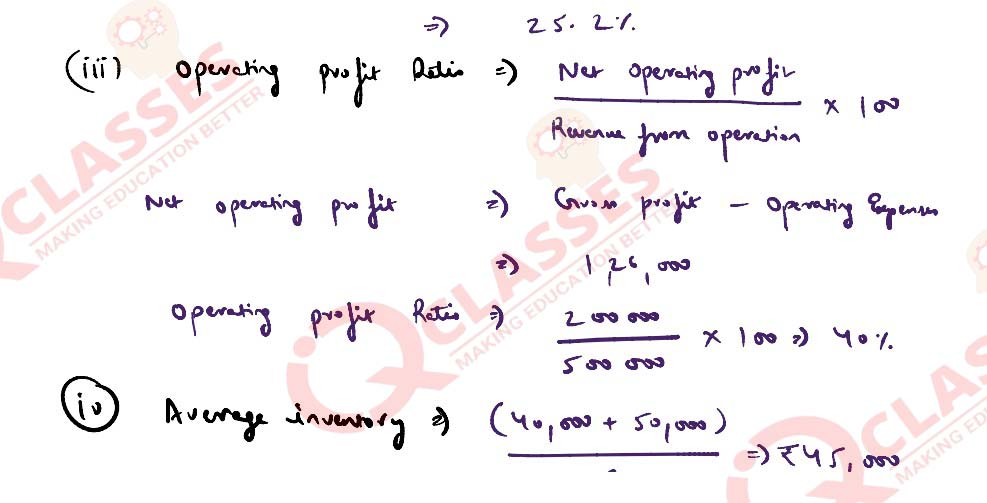 =) 25.2%
(iii) Operating profit Ratio =) Net operating profit / Revenue from operation x 100
Net operating profit =) Gross profit - Operating Expenses
=) 1,26,000
Operating profit Ratio =) 200 000 / 500 000 x 100 =) 40%
(iv) Average inventory =) (40,000 + 50,000) =) ₹45,000
CLASSES
MAKING EDUCATION BETTER
CLASSES
MAKING EDUCATION BETTER
CLASSES
MAKING ED